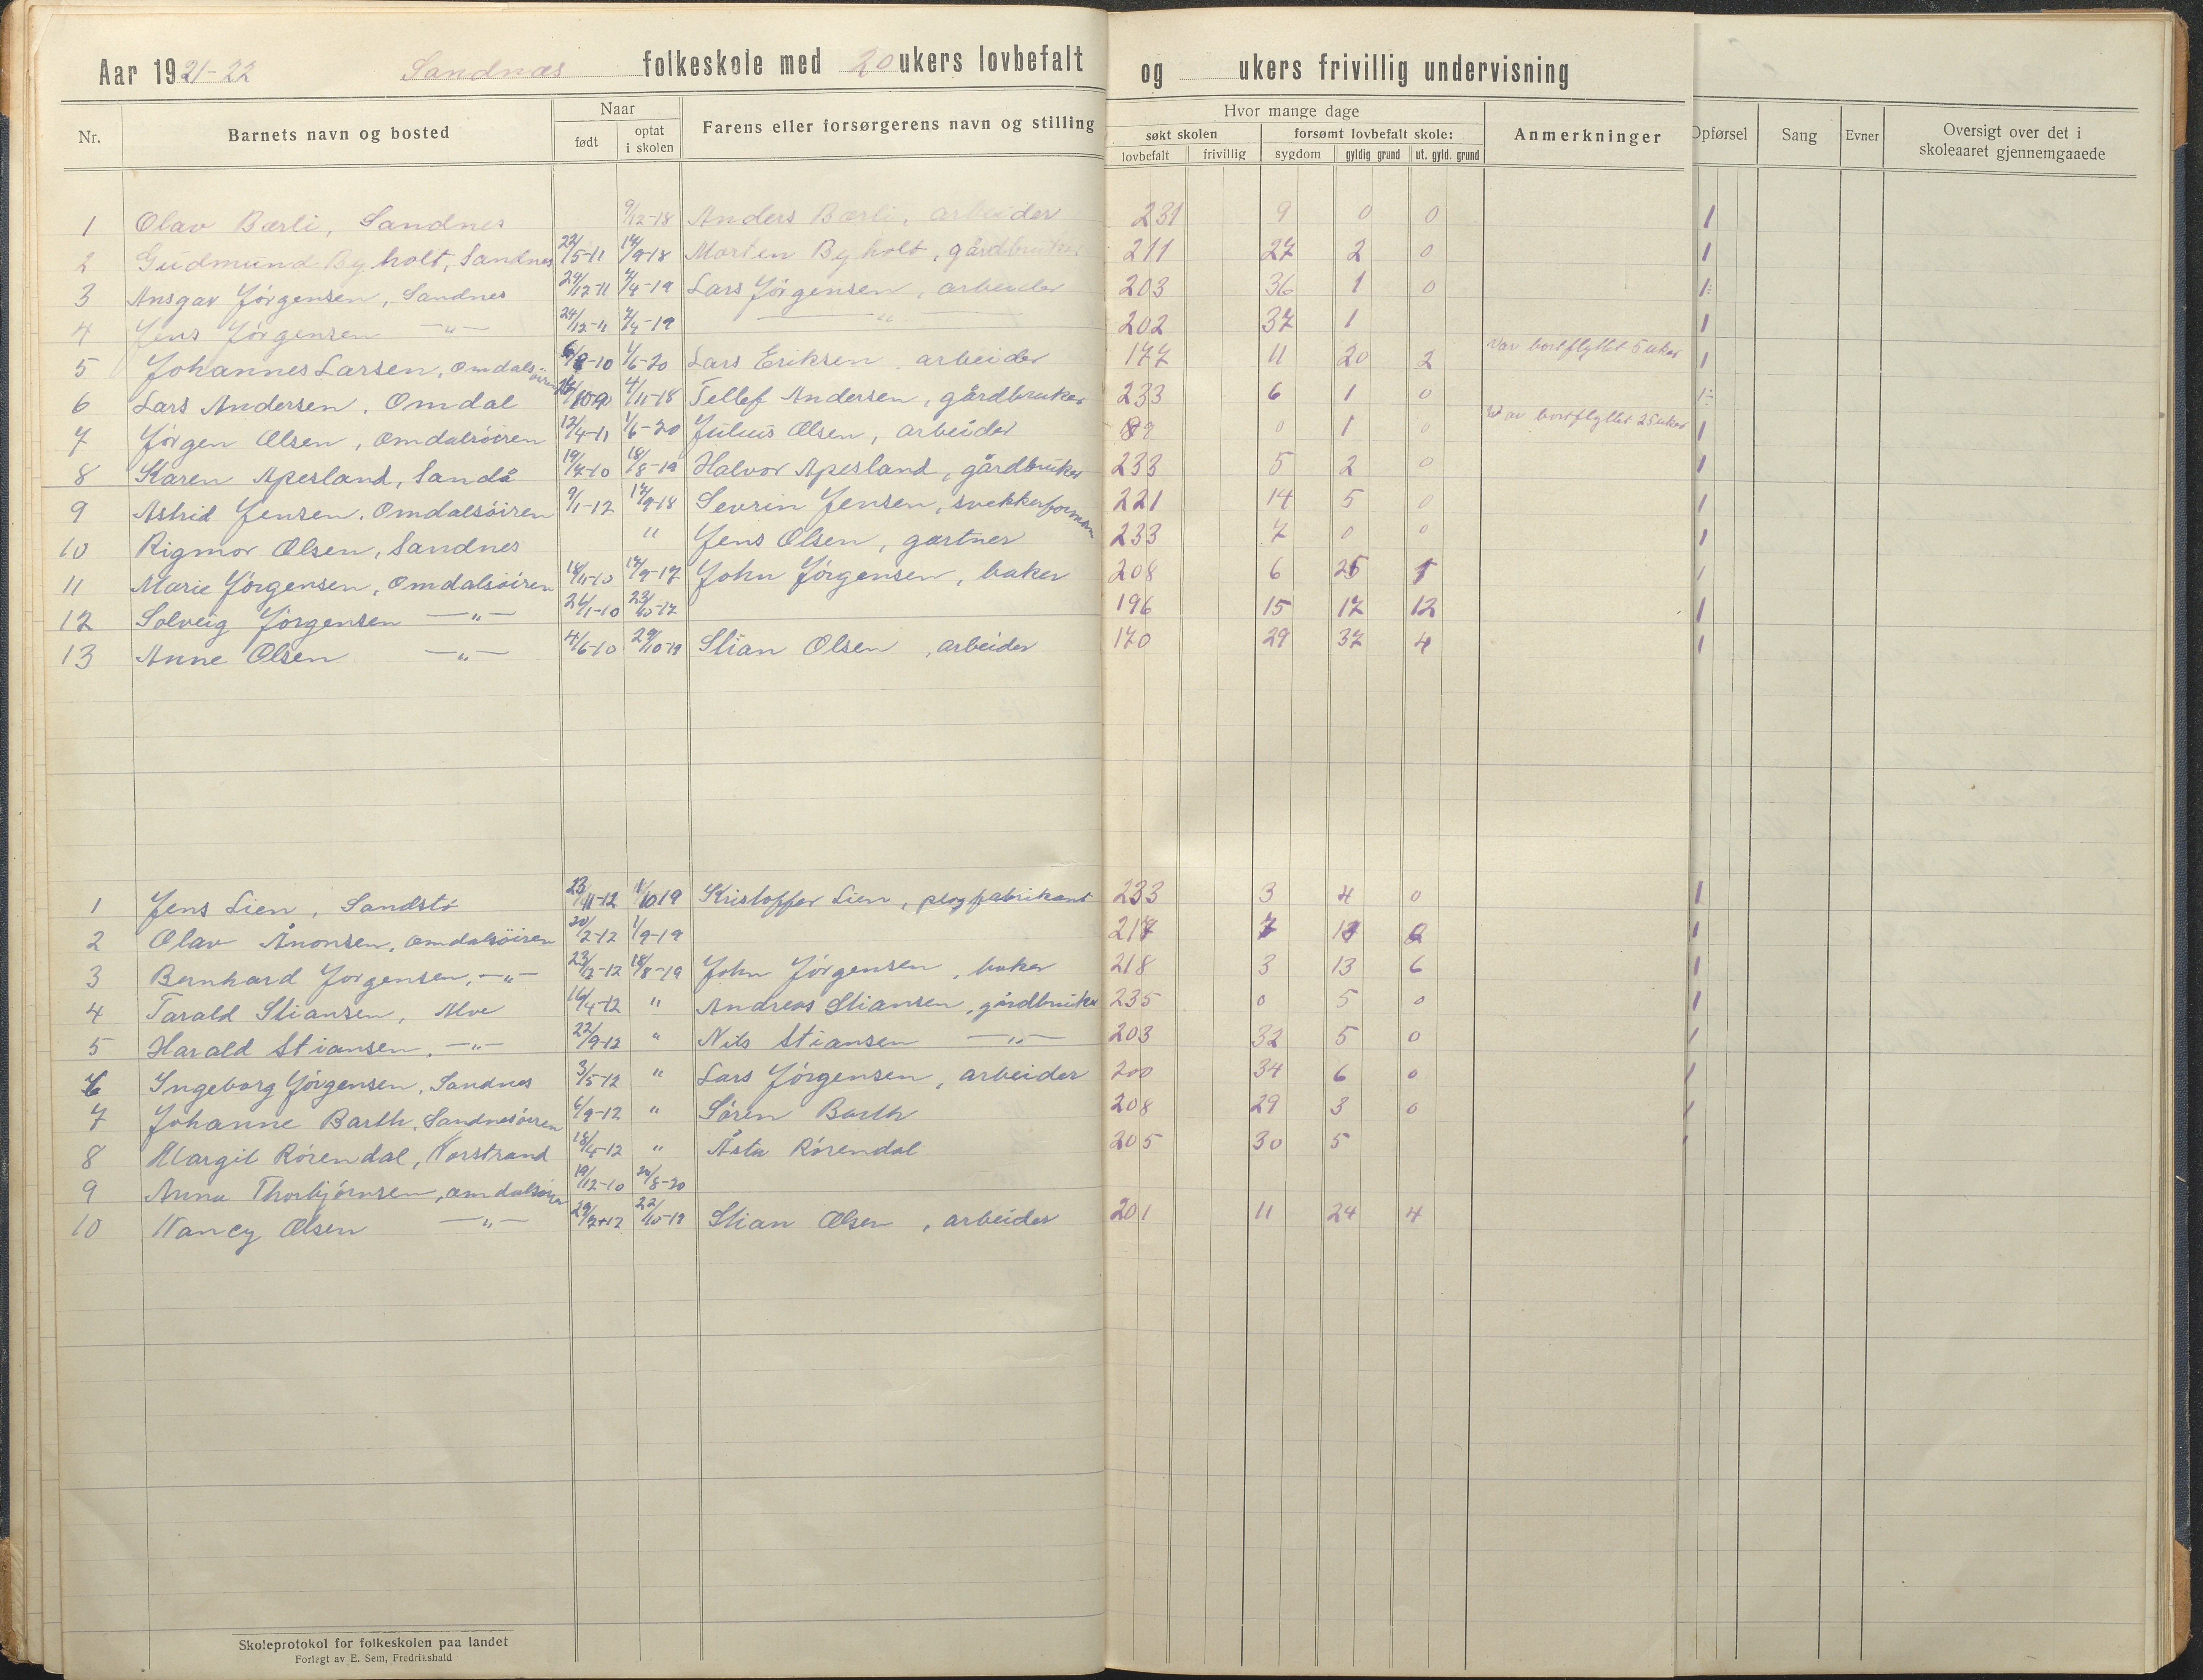 Aar 1921-22 Sandnæs folkeskole med 20 ukers lovbefalt og ukers frivillig undervisning
Nr. Barnets navn og bosted Naar født optat i skolen Farens eller forsørgerens navn og stilling Hvor mange dage søkt skolen lovbefalt frivillig forsømt lovbefalt skole: sygdom gyldig grund ut. gyld. grund Anmerkninger Opførsel Sang Evner Oversigt over det i skoleaaret gjennemgaaede
1 Olav Bærli, Sandnes 9/12-18 Anders Bærli, arbeider 231 9 0 0 1
2 Gudmund Byholt, Sandnes 22/5-11 17/9-18 Morten Byholt, gårdbruker 211 27 2 0 1
3 Ansgar Jörgensen, Sandnes 24/12-11 7/4-19 Lars Jörgensen, arbeider 203 36 1 0 1÷
4 Jens Jörgensen —"— 24/12-11 7/4-19 —"— 202 37 1 1
5 Johannes Larsen, Omdalsöiren 1/6-20 Lars Eriksen, arbeider 177 11 20 2 Var bortflyttet 5 uker 1
6 Lars Andersen, Omdal 4/11-18 Tellef Andersen, gårdbruker 233 6 1 0 1÷
7 Jörgen Olsen, Omdalsöiren 12/4-11 1/6-20 Julius Olsen, arbeider 0 1 0 Var bortflyttet 25 uker 1
8 Karen Apesland, Sandå 19/4-10 18/8-19 Halvor Apesland, gårdbruker 233 5 2 0 1
9 Astrid Jensen, Omdalsöiren 9/1-12 17/9-18 Sevrin Jensen, svekkerforman 221 14 5 0 1
10 Rigmor Olsen, Sandnes " Jens Olsen, gartner 233 7 0 0 1
11 Marie Jörgensen, Omdalsöiren 18/11-10 17/9-17 John Jörgensen, baker 208 6 1
12 Solveig Jörgensen —"— 21/1-10 23/10-17 196 15 17 12 1
13 Anne Olsen —"— 4/6-10 29/10-19 Stian Olsen, arbeider 170 29 37 4 1
1 Jens Lien, Sandstö 23/11-12 1/10 19 Kristoffer Lien, plogfabrikant 233 3 4 0 1
2 Olav Ånonsen, Omdalsöiren 20/2-12 1/9-19 217 7 1
3 Bernhard Jorgensen, —"— 23/2-12 18/8-19 John Jörgensen, baker 218 3 13 6 1
4 Tarald Stiansen, Alve 16/4-12 " Andreas Stiansen, gårdbruker 235 0 5 0 1
5 Harald Stiansen, —"— 22/9-12 " Nils Stiansen —"— 203 32 5 0 1
6 Ingeborg Jörgensen, Sandnes 3/5-12 " Lars Jörgensen, arbeider 200 34 6 0 1
7 Johanne Barth, Sandnesöiren 6/9-12 " Sören Barth 208 29 3 0 1
8 Margit Rörendal, Norstrand 18/4-12 " Åsta Rörendal 205 30 5 1
9 Anna Thorbjörnsen, Omdalsöiren 19/12-10 24/8-20
10 Nancy Olsen —"— 22/10-19 Stian Olsen, arbeider 201 11 24 4
Skoleprotokol for folkeskolen paa landet
Forlagt av E. Sem, Fredrikshald